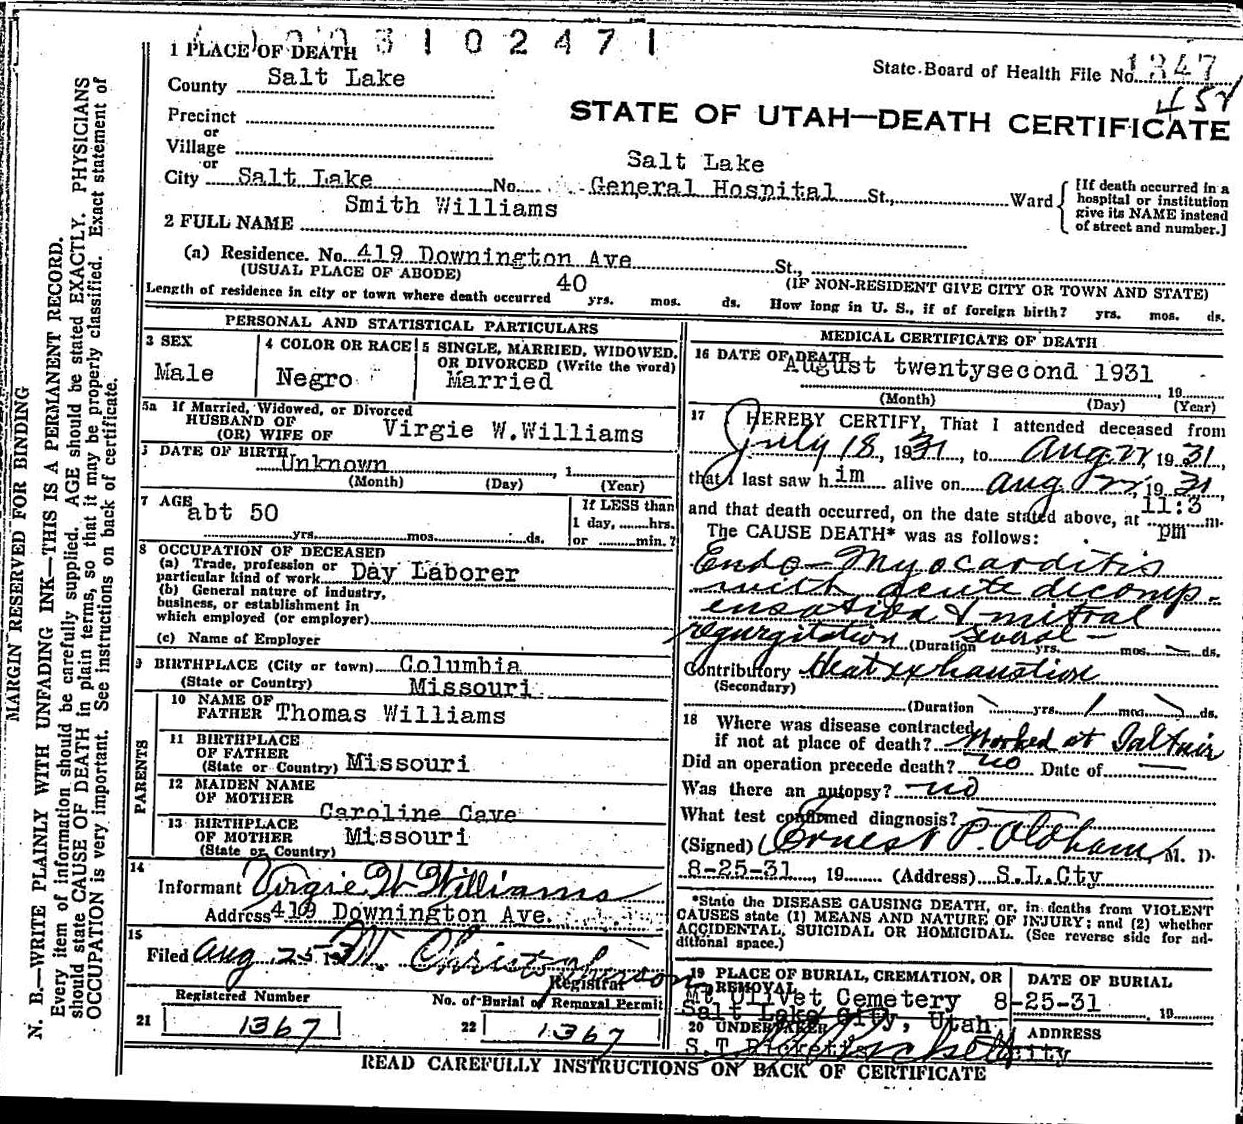 3 1 0 2 4 7 1
1 PLACE OF DEATH
State Board of Health File No. 1347
458
County Salt Lake
STATE OF UTAH—DEATH CERTIFICATE
Precinct
or
Village
or
Salt Lake
City Salt Lake No. General Hospital St., Ward
[If death occurred in a
hospital or institution
give its NAME instead
of street and number.]
2 FULL NAME Smith Williams
(a) Residence. No. 419 Downington Ave St.,
(USUAL PLACE OF ABODE) (IF NON-RESIDENT GIVE CITY OR TOWN AND STATE)
Length of residence in city or town where death occurred 40 yrs. mos. ds. How long in U. S., if of foreign birth? yrs. mos. ds.
PERSONAL AND STATISTICAL PARTICULARS
3 SEX
Male
4 COLOR OR RACE
Negro
5 SINGLE, MARRIED, WIDOWED,
OR DIVORCED (Write the word)
Married
5a If Married, Widowed, or Divorced
HUSBAND OF
(OR) WIFE OF Virgie W.Williams
DATE OF BIRTH Unknown , 1
(Month) (Day) (Year)
7 AGE abt 50
yrs. mos. ds.
If LESS than
1 day, hrs.
or min.?
8 OCCUPATION OF DECEASED
(a) Trade, profession or
particular kind of work Day Laborer
(b) General nature of industry,
business, or establishment in
which employed (or employer)
(c) Name of Employer
9 BIRTHPLACE (City or town) Columbia
(State or Country) Missouri
PARENTS
10 NAME OF
FATHER Thomas Williams
11 BIRTHPLACE
OF FATHER
(State or Country) Missouri
12 MAIDEN NAME
OF MOTHER
Caroline Cave
13 BIRTHPLACE
OF MOTHER Missouri
(State or Country)
14
Informant Virgie W Williams
Address 419 Downington Ave.
15
Filed Aug 25 31 M. Christopherson
Registrar
Registered Number No. of Burial or Removal Permit
21 1367 22 1367
MEDICAL CERTIFICATE OF DEATH
16 DATE OF DEATH
August twentysecond 1931 , 19
(Month) (Day) (Year)
17 I HEREBY CERTIFY, That I attended deceased from
July 18, 1931, to Aug 22, 1931,
that I last saw him alive on Aug 22 1931,
and that death occurred, on the date stated above, at 11:3
pm m.
The CAUSE DEATH* was as follows:
Endo-Myocarditis
with acute decomp-
ensation & mitral
regurgitation (Duration several yrs. mos. ds.
Contributory Heat exhaustion
(Secondary)
(Duration yrs. 1 mos. ds.
18 Where was disease contracted
if not at place of death? Worked at Saltair
Did an operation precede death? no Date of
Was there an autopsy? no
What test confirmed diagnosis?
(Signed) Ernest P. Oldham, M. D.
8-25-31, 19 (Address) S.L.Cty
*State the DISEASE CAUSING DEATH, or, in deaths from VIOLENT
CAUSES state (1) MEANS AND NATURE OF INJURY; and (2) whether
ACCIDENTAL, SUICIDAL OR HOMICIDAL. (See reverse side for ad-
ditional space.)
19 PLACE OF BURIAL, CREMATION, OR
REMOVAL
Mt Olivet Cemetery
Salt Lake City, Utah
DATE OF BURIAL
8-25-31 , 19
20 UNDERTAKER
S.T Ricketts
ADDRESS
City
READ CAREFULLY INSTRUCTIONS ON BACK OF CERTIFICATE
MARGIN RESERVED FOR BINDING
N. B.—WRITE PLAINLY WITH UNFADING INK—THIS IS A PERMANENT RECORD.
Every item of information should be carefully supplied. AGE should be stated EXACTLY. PHYSICIANS
should state CAUSE OF DEATH in plain terms, so that it may be properly classified. Exact statement of
OCCUPATION is very important. See instructions on back of certificate.